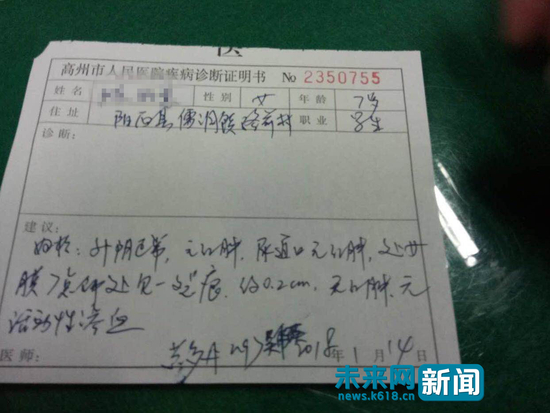 高州市人民医院疾病诊断证明书 No 2350755
姓名 性别 女 年龄 7岁
住址 阳西县儒洞镇 村 职业 学生
诊断:
建议:
妇检:外阴 ,无红肿,尿道口无红肿,处女
膜7点钟处见一 痕,约0.2cm,无红肿,无
活动性渗血
医师: 2018年1月14日
未来网 新闻
news.k618.cn